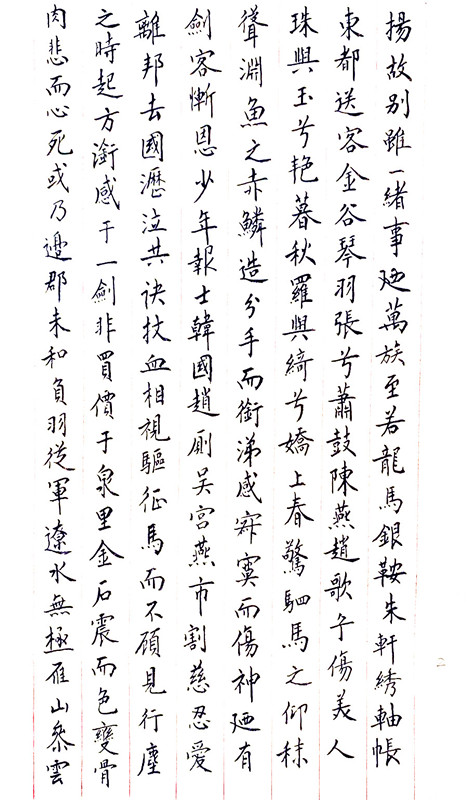 揚故别雖一緒事廼萬族至若龍馬銀鞍朱軒綉軸帳
東都送客金谷琴羽張兮蕭鼓陳燕趙歌兮傷美人
珠與玉兮艳暮秋羅與綺兮嬌上春驚駟馬之仰秣
聳淵魚之赤鱗造分手而銜涕感寂寞而傷神廼有
劍客慚恩少年報士韓國趙厠吴宫燕市割慈忍愛
離邦去國瀝泣共诀抆血相視驅征馬而不顧見行塵
之時起方銜感于一劍非買價于泉里金石震而色變骨
肉悲而心死或乃邊郡未和負羽從軍遼水無極雁山參雲